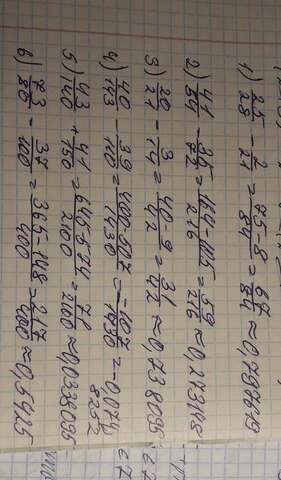 1) 25/28 - 2/21 = 75-8/84 = 67/84 ≈ 0,797619
2) 41/54 - 35/72 = 164-105/216 = 59/216 ≈ 0,273148
3) 20/21 - 3/14 = 40-9/42 = 31/42 ≈ 0,738095
4) 40/143 - 39/110 = 400-507/1430 = -107/1430 = -0,074
8252
5) 43/140 + 41/150 = 645 574/2100 = 71/2100 ≈ 0,0338095
6) 73/80 - 37/100 = 365-148/400 = 217/400 ≈ 0,5425